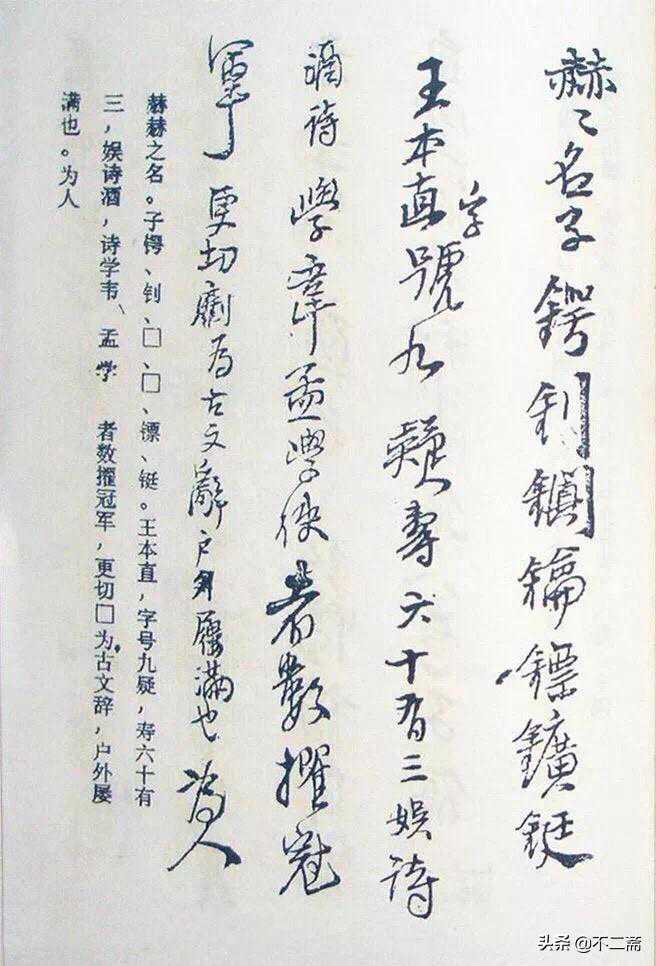 赫〻名子锷钊鑐錀镖鑛鋌
王本直字號九疑壽六十有三娱诗
酒诗學韋孟學使者數擢冠
軍更切劘為古文辭户外屦滿也為人
赫赫之名。子锷、钊、□、□、镖、铤。王本直，字号九疑，寿六十有
三，娱诗酒，诗学韦、孟学 者数擢冠军，更切□为古文辞，户外屡
满也。为人
头条 @不二斋